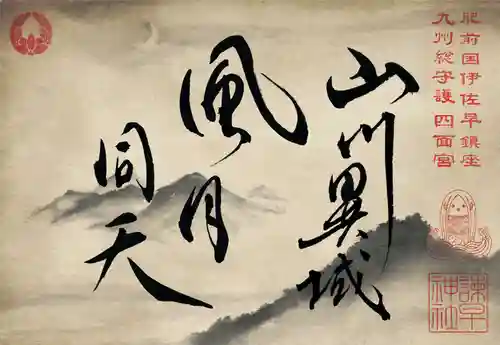 肥前国伊佐早鎮座
九州総守護四面宮
山川異域
風月
同天
諫早
神社